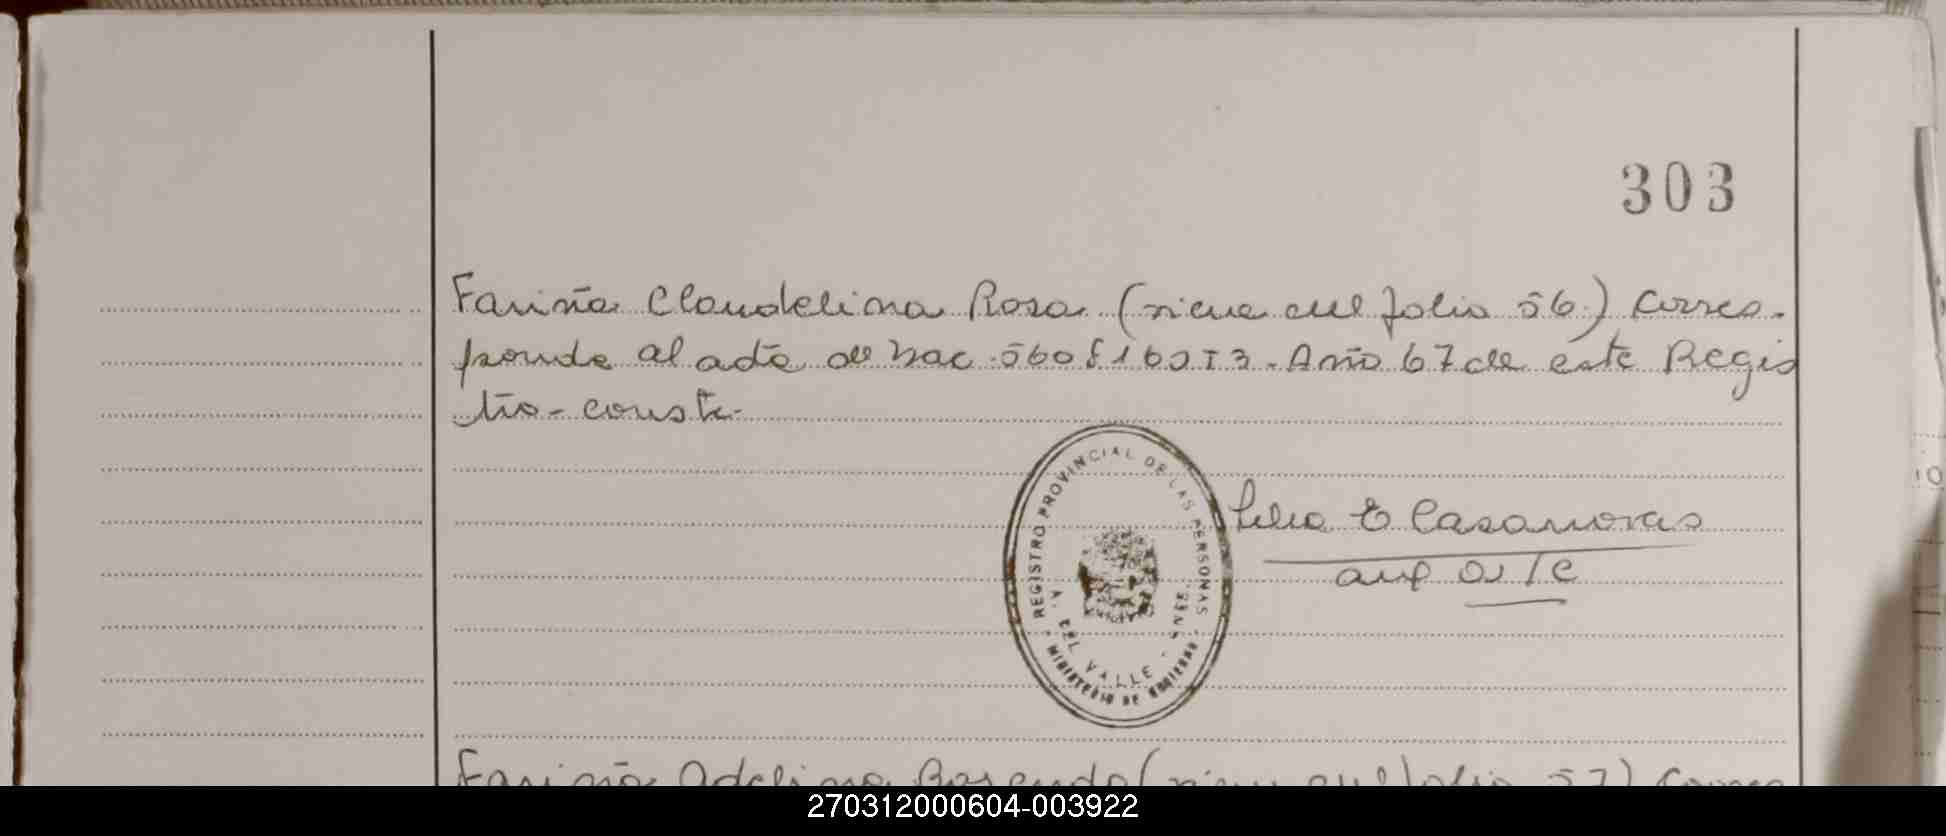 303
Fariña Claudelina Rosa (viene del folio 56) Corres-
ponde al acta de Nac. 560 f 163 T 3. Año 67 de este Regis
tro-conste-
REGISTRO PROVINCIAL DE LAS PERSONAS
V. DEL VALLE
MINISTERIO DE GOBIERNO
E Casanovas
Fariña Adelina Rosenda (viene del folio 57) Corres
270312000604-003922